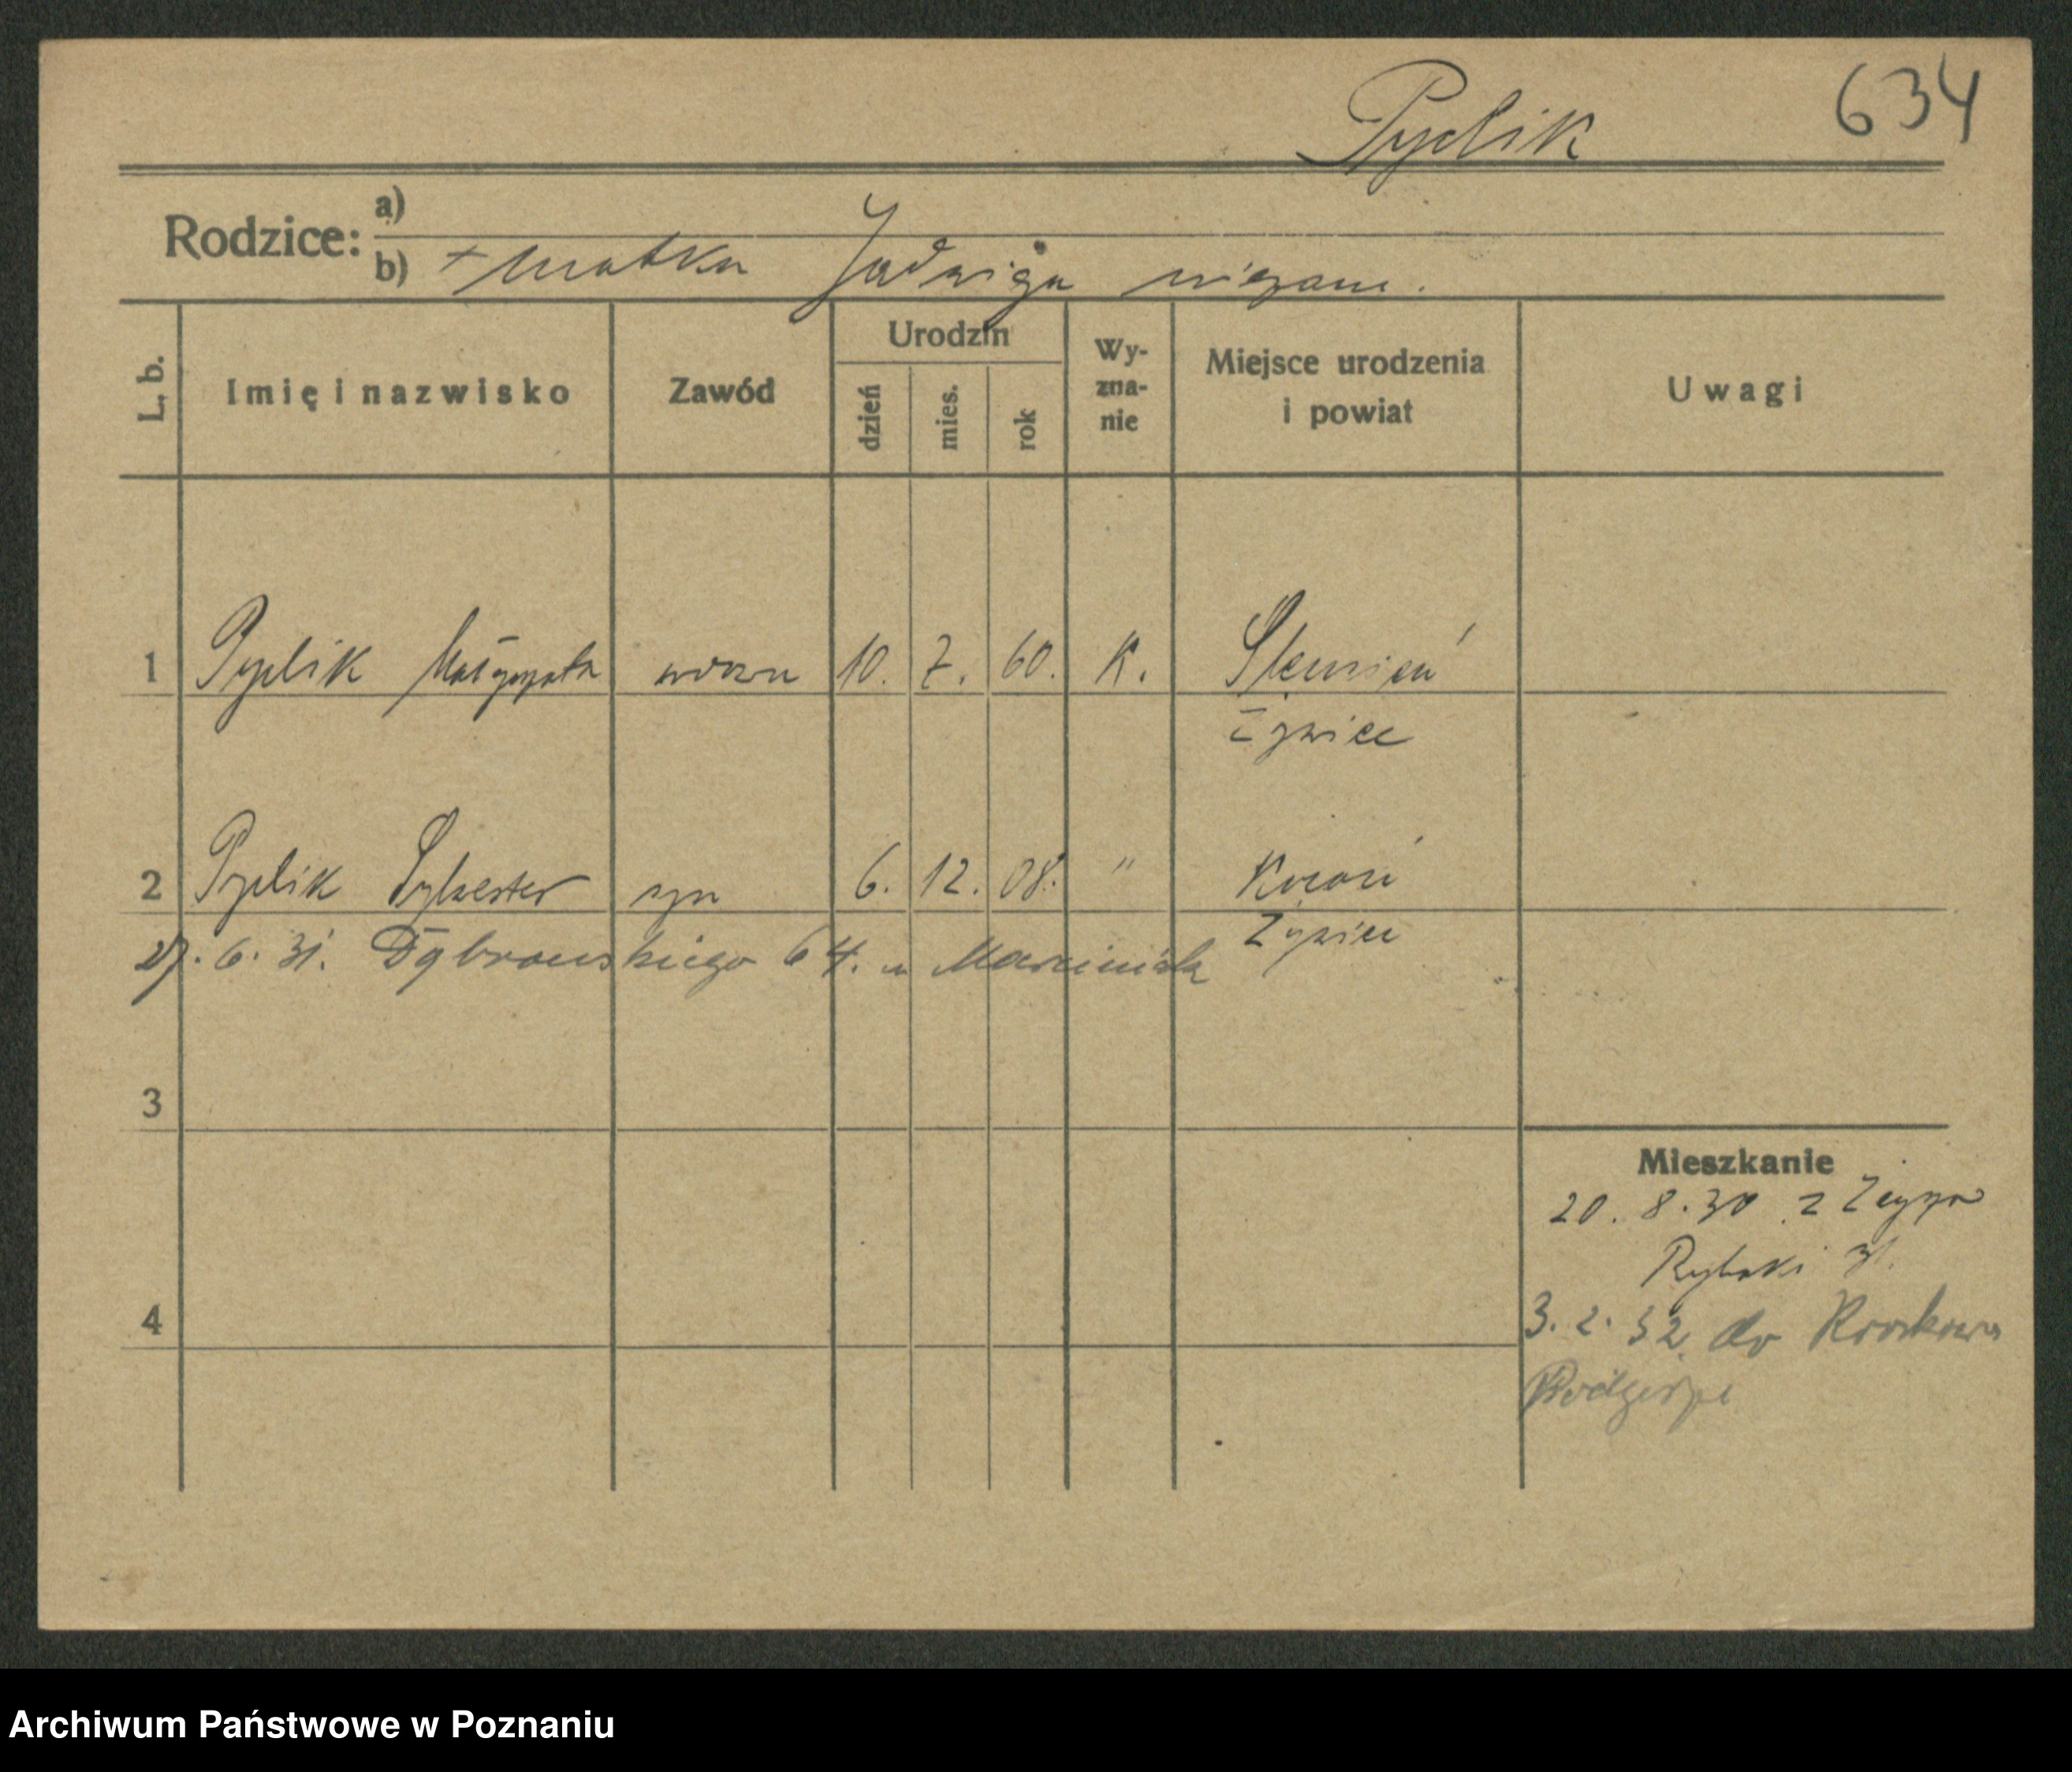 Pyclik 634
Rodzice: a)
b) + matka Jadwiga niezam.
L. b. Imię i nazwisko Zawód Urodzin dzień mies. rok Wy- zna- nie Miejsce urodzenia i powiat Uwagi
1 Pyclik Małgorzata wdowa 10. 7. 60. K. Ślemień
Żywiec
2 Pyclik Sylwester syn 6. 12. 08. " Kocoń
Żywiec
27. 6. 31. Dąbrowskiego 64. u Marciniaka
3
Mieszkanie
20. 8. 30 z
Rybaki 31.
4
3. 2. 32. do Krakowa
Podgórze
Archiwum Państwowe w Poznaniu